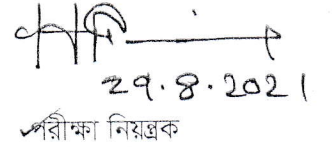 29.8.2021
পরীক্ষা নিয়ন্ত্রক